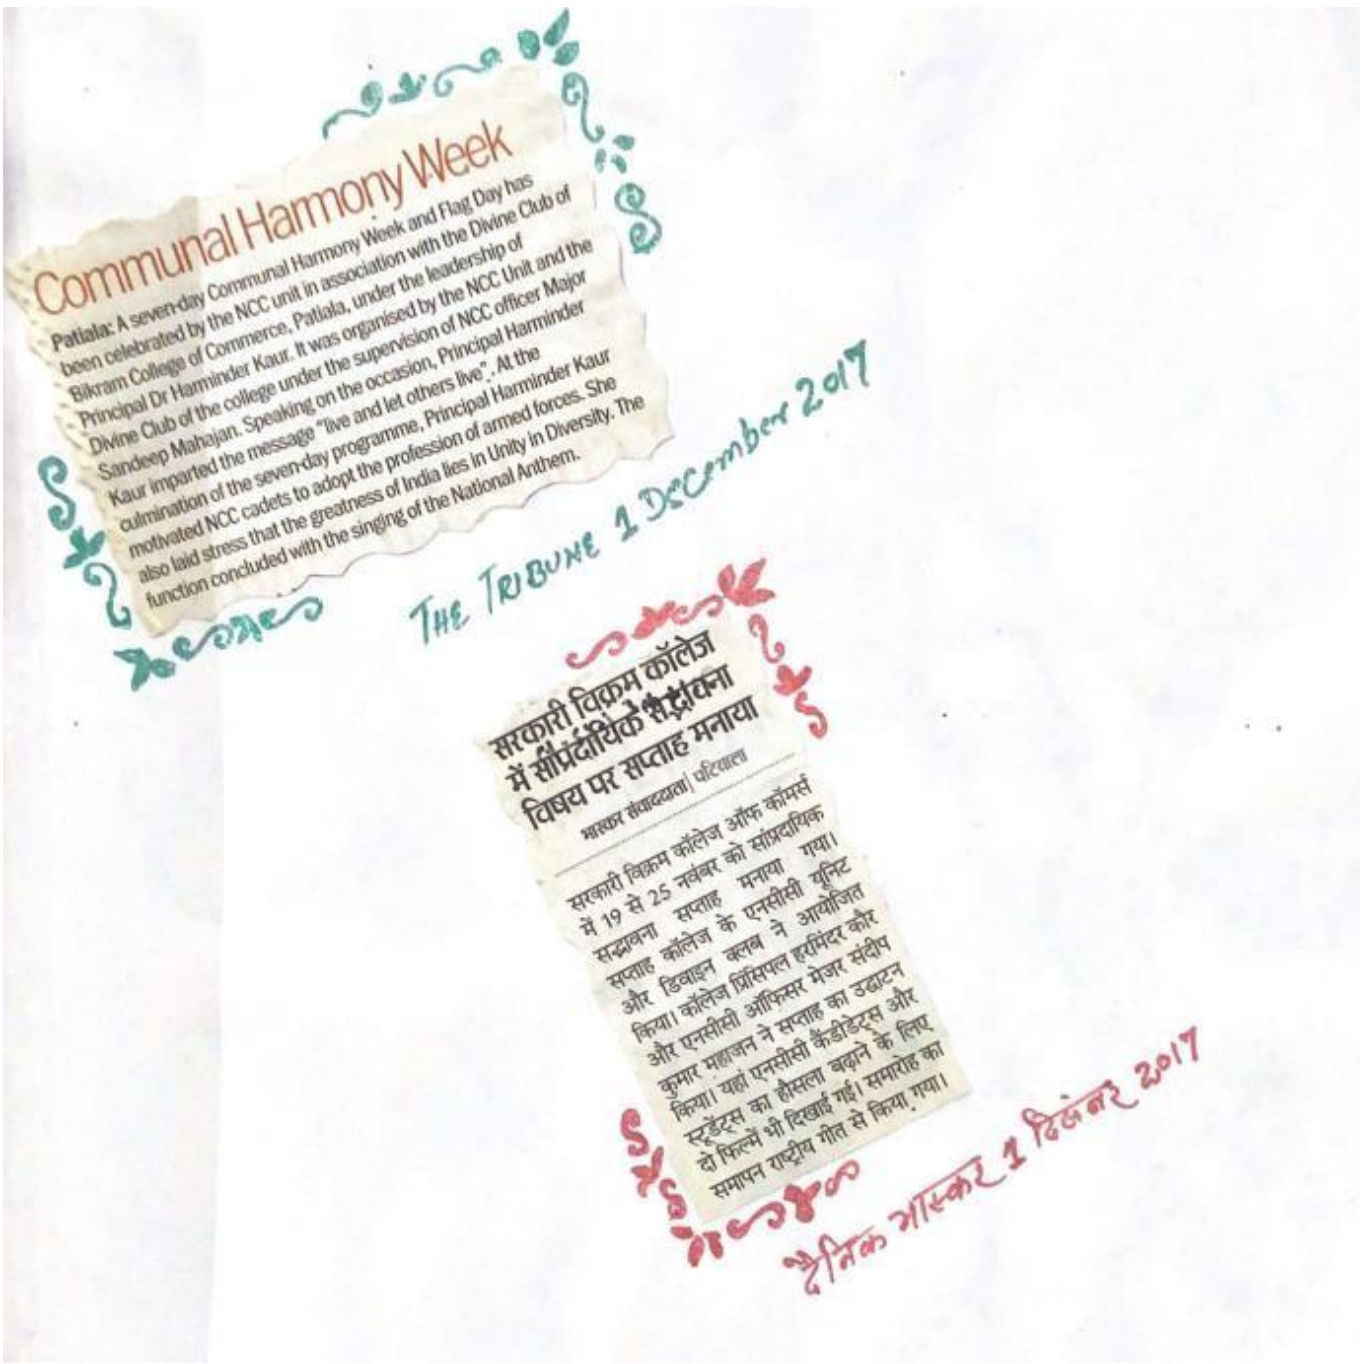 Communal Harmony Week
Patiala: A seven-day Communal Harmony Week and Flag Day has
been celebrated by the NCC unit in association with the Divine Club of
Bikram College of Commerce, Patiala, under the leadership of
Principal Dr Harminder Kaur. It was organised by the NCC Unit and the
Divine Club of the college under the supervision of NCC officer Major
Sandeep Mahajan. Speaking on the occasion, Principal Harminder
Kaur imparted the message "live and let others live". At the
culmination of the seven-day programme, Principal Harminder Kaur
motivated NCC cadets to adopt the profession of armed forces. She
also laid stress that the greatness of India lies in Unity in Diversity. The
function concluded with the singing of the National Anthem.
THE TRIBUNE 1 DECEMBER 2017
सरकारी विक्रम कॉलेज
में सांप्रदायिक सद्भावना
विषय पर सप्ताह मनाया
भास्कर संवाददाता| पटियाला
सरकारी विक्रम कॉलेज ऑफ कॉमर्स
में 19 से 25 नवंबर को सांप्रदायिक
सद्भावना सप्ताह मनाया गया।
सप्ताह कॉलेज के एनसीसी यूनिट
और डिवाइन क्लब ने आयोजित
किया। कॉलेज प्रिंसिपल हरमिंदर कौर
और एनसीसी ऑफिसर मेजर संदीप
कुमार महाजन ने सप्ताह का उद्घाटन
किया। यहां एनसीसी कैंडीडेट्स और
स्टूडेंट्स का हौसला बढ़ाने के लिए
दो फिल्में भी दिखाई गई। समारोह का
समापन राष्ट्रीय गीत से किया गया।
दैनिक भास्कर 1 दिसंबर 2017